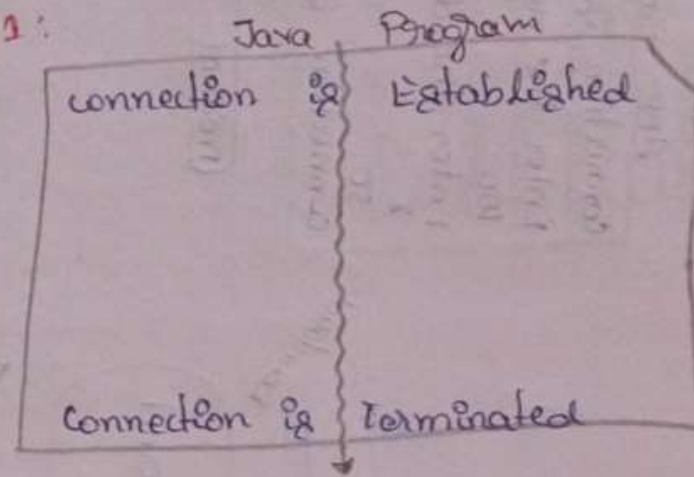 1:
Java Program
connection is Established
Connection is Terminated